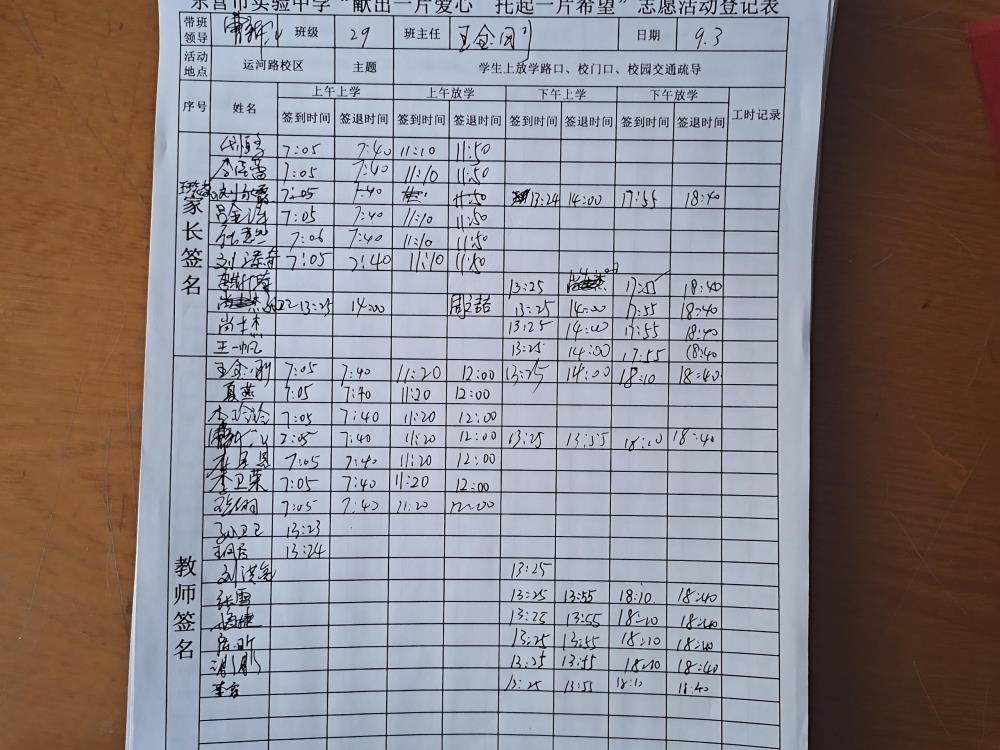 东营市实验中学“献出一片爱心 托起一片希望”志愿活动登记表
带班领导 班级 29 班主任 王金刚 日期 9.3
活动地点 运河路校区 主题 学生上放学路口、校门口、校园交通疏导
序号 姓名 上午上学 上午放学 下午上学 下午放学 工时记录
签到时间 签退时间 签到时间 签退时间 签到时间 签退时间 签到时间 签退时间
家长签名
7:05 7:40 11:10 11:50
7:05 7:40 11:10 11:50
7:05 7:40 11:50 13:24 14:00 17:55 18:40
7:05 7:40 11:10 11:50
7:06 7:40 11:10 11:50
7:05 7:40 11:10 11:50
13:25 17:55 18:40
13:25 14:00 13:25 14:00 17:55 18:40
尚士杰 13:25 14:00 17:55 18:40
王一帆 13:25 14:00 17:55 18:40
教师签名
王金刚 7:05 7:40 11:20 12:00 13:25 14:00 18:10 18:40
夏燕 7:05 7:40 11:20 12:00
李玲玲 7:05 7:40 11:20 12:00
7:05 7:40 11:20 12:00 13:25 13:55 18:10 18:40
7:05 7:40 11:20 12:00
李卫荣 7:05 7:40 11:20 12:00
7:05 7:40 11:20 12:00
孙卫卫 13:23
13:24
13:25
张雪 13:25 13:55 18:10 18:40
13:25 13:55 18:10 18:40
13:25 13:55 18:10 18:40
13:25 13:55 18:10 18:40
13:25 13:55 18:10 18:40